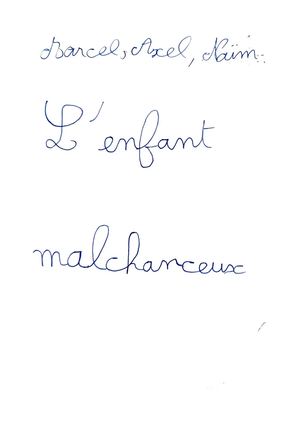 Marcel, Axel, Naïm.
L'enfant
malchanceux